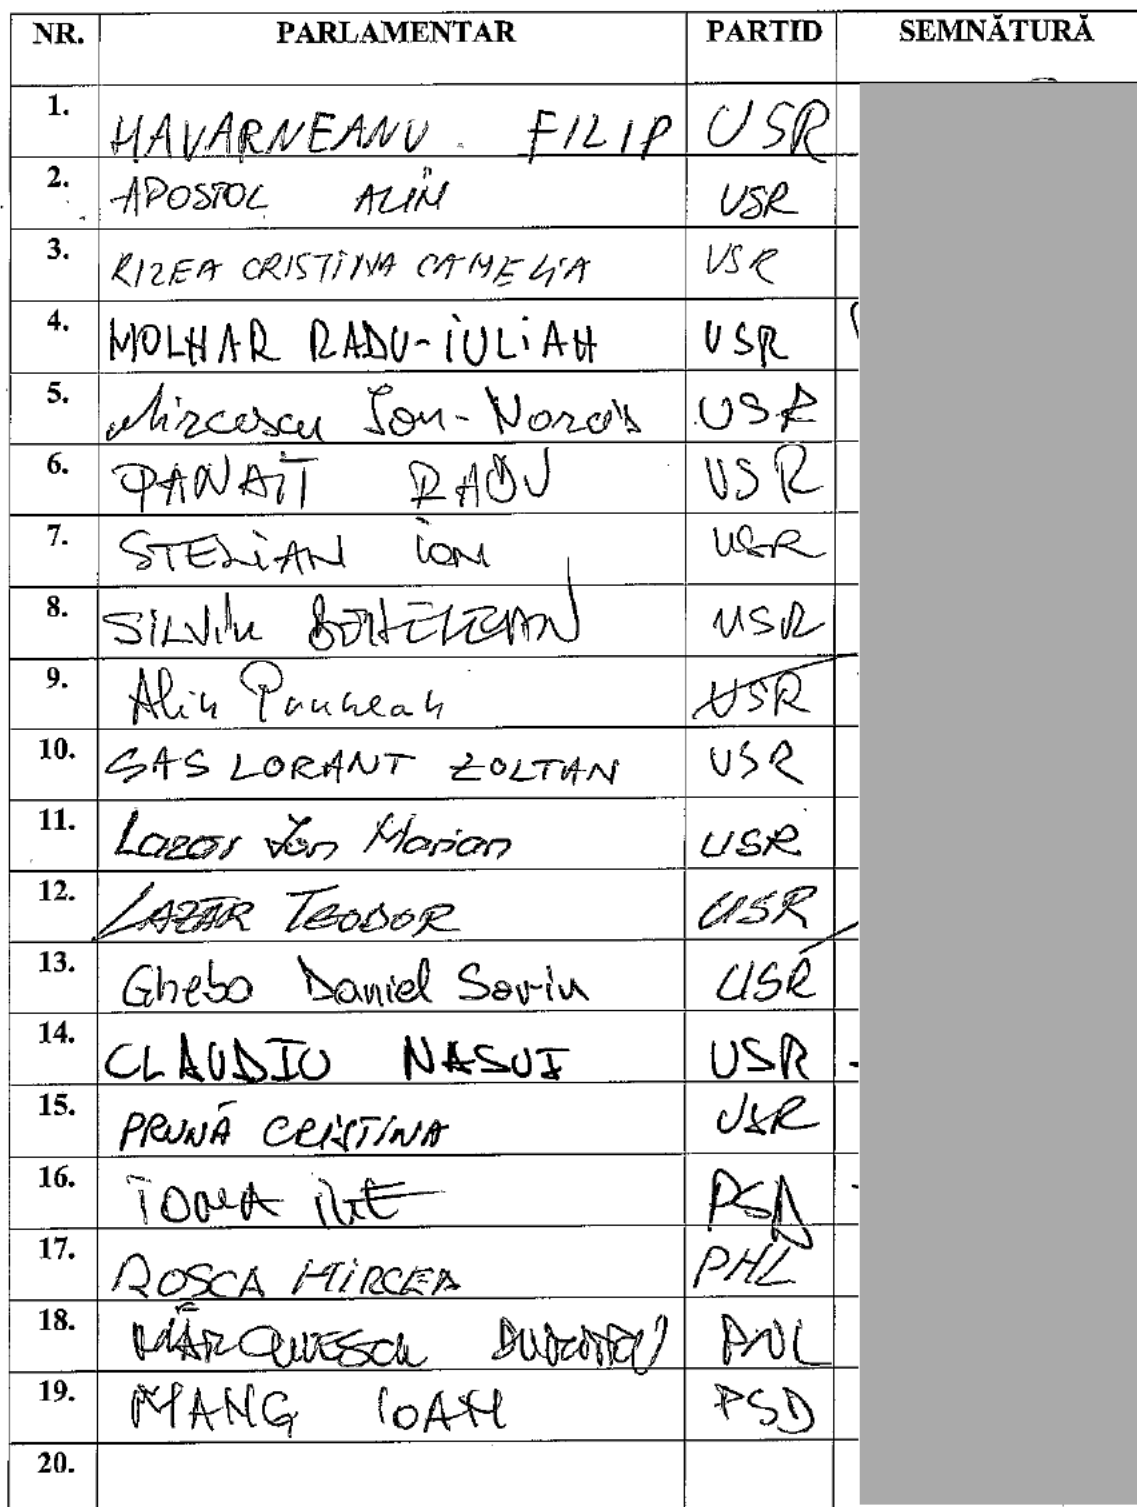 NR. PARLAMENTAR PARTID SEMNĂTURĂ
1. HAVARNEANU FILIP USR
2. APOSTOL ALIN USR
3. RIZEA CRISTINA CAMELIA USR
4. MOLNAR RADU-IULIAN USR
5. Mircescu Ion-Narcis USR
6. PANAIT RADU USR
7. STELIAN ION USR
8. SILVIU USR
9. Alin Prunean USR
10. SAS LORANT ZOLTAN USR
11. Lazar Ion Marian USR
12. LAZĂR TEODOR USR
13. Ghebo Daniel Sorin USR
14. CLAUDIU NASUI USR
15. PRUNĂ CRISTINA USR
16. TOMA ILIE PSD
17. ROSCA MIRCEA PNL
18. PNL
19. MANG IOAN PSD
20.